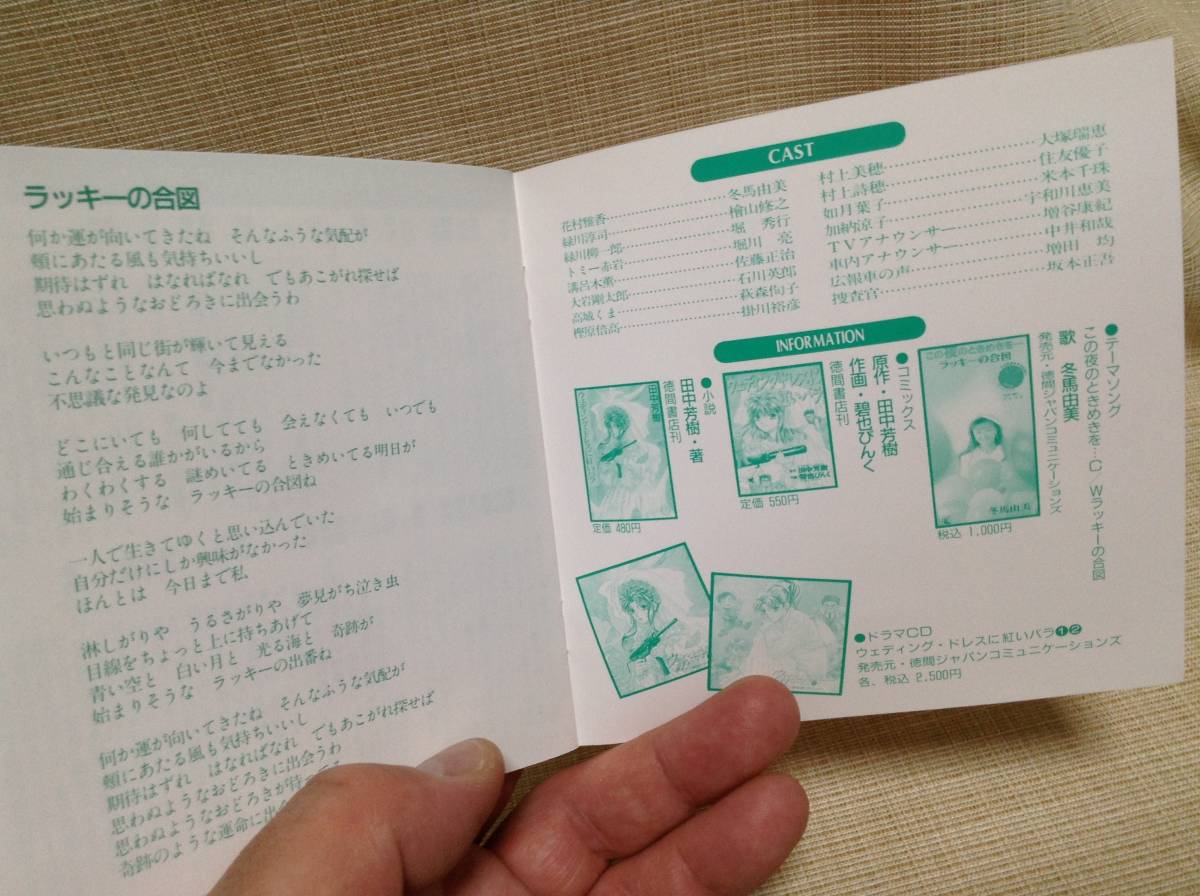 ラッキーの合図
何か運が向いてきたね　そんなふうな気配が
頬にあたる風も気持ちいいし
期待はずれ　はなればなれ　でもあこがれ探せば
思わぬようなおどろきに出会うわ
いつもと同じ街が輝いて見える
こんなことなんて　今までなかった
不思議な発見なのよ
どこにいても　何してても　会えなくても　いつでも
通じ合える誰かがいるから
わくわくする　謎めいてる　ときめいてる明日が
始まりそうな　ラッキーの合図ね
一人で生きてゆくと思い込んでいた
自分だけにしか興味がなかった
ほんとは　今日まで私
淋しがりや　うるさがりや　夢見がち泣き虫
目線をちょっと上に持ちあげて
青い空と　白い月と　光る海と　奇跡が
始まりそうな　ラッキーの出番ね
何か運が向いてきたね　そんなふうな気配が
頬にあたる風も気持ちいいし
期待はずれ　はなればなれ　でもあこがれ探せば
思わぬようなおどろきに出会うわ
思わぬようなおどろきが待ってる
奇跡のような運命に出会
CAST
花村雅香……冬馬由美
緑川淳司……檜山修之
緑川柳一郎……堀　秀行
トミー赤岩……堀川　亮
溝呂木薫……佐藤正治
大岩剛太郎……石川英郎
高城くま……萩森侚子
樫原倍高……掛川裕彦
村上美穂……大塚瑞恵
村上詩穂……住友優子
如月葉子……米本千珠
加納涼子……宇和川恵美
TVアナウンサー……増谷康紀
車内アナウンサー……中井和哉
広報車の声……増田　均
捜査官……坂本正吾
INFORMATION
●小説
田中芳樹・著
徳間書店刊
田中芳樹
定価 480円
●コミックス
原作・田中芳樹
作画・碧也ぴんく
徳間書店刊
田中芳樹
碧也ぴんく
定価 550円
●テーマソング
この夜のときめきを…C／Wラッキーの合図
歌　冬馬由美
発売元・徳間ジャパンコミュニケーションズ
この夜のときめきを…
ラッキーの合図
冬馬由美
税込 1.000円
●ドラマCD
ウェディング・ドレスに紅いバラ❶❷
発売元・徳間ジャパンコミュニケーションズ
各、税込 2.500円